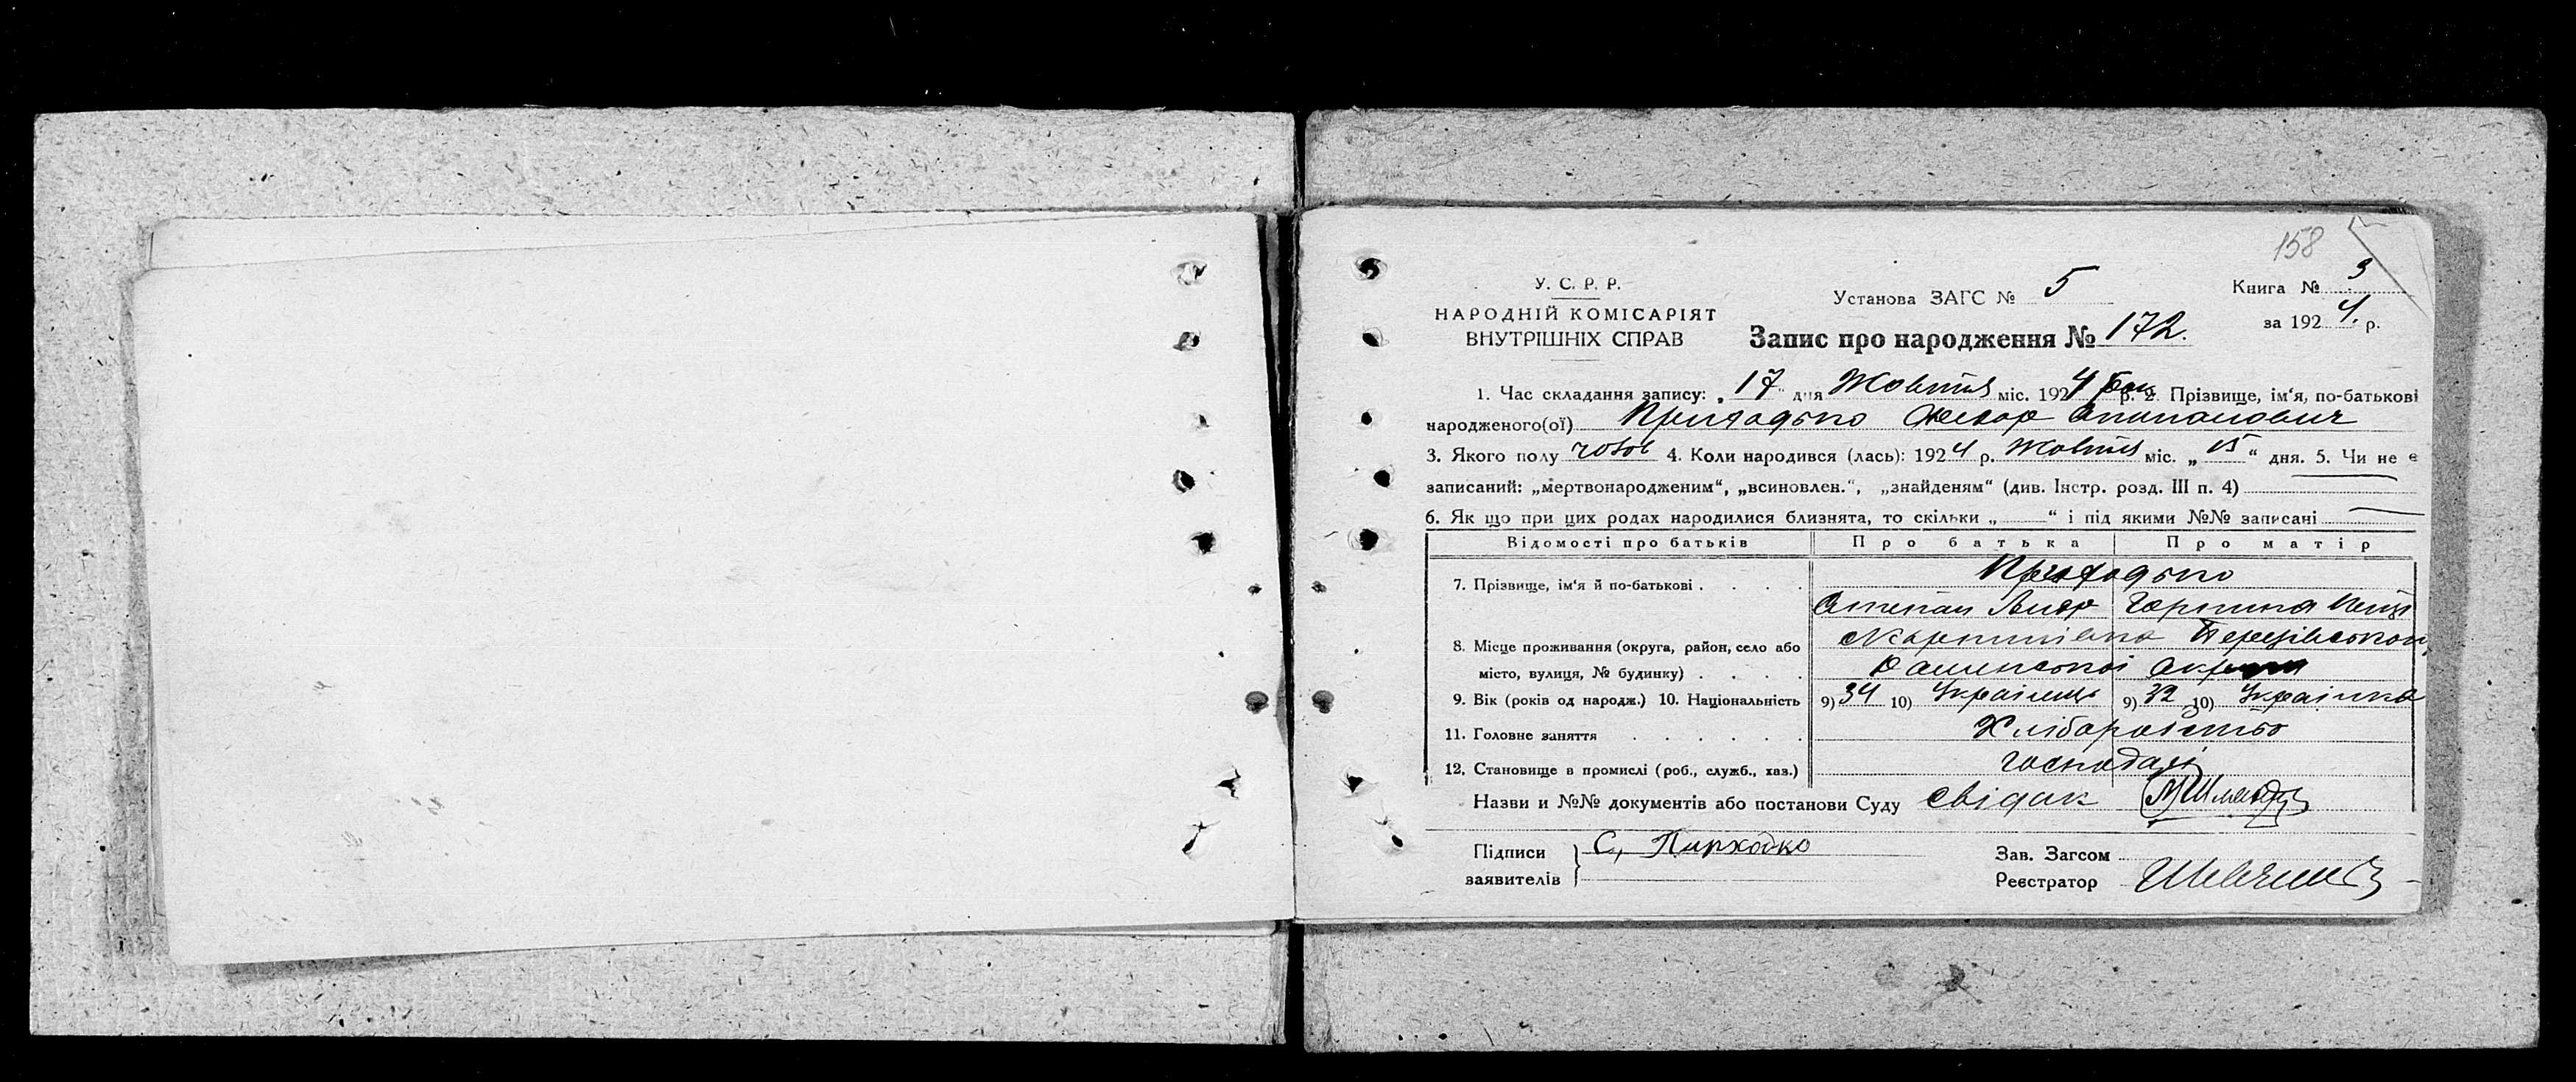 158
У. С. Р. Р.
НАРОДНІЙ КОМІСАРІЯТ
ВНУТРІШНІХ СПРАВ
Установа ЗАГС № 5
Книга № 3
за 1924 р.
Запис про народження № 172.
1. Час складання запису: „17" дня Жовтня міс. 1924 р. 2. Прізвище, ім'я, по-батькові
народженого(ої) Приходько Федор Степанович
3. Якого полу чолов 4. Коли народився (лась): 1924 р. Жовтня міс. „15" дня. 5. Чи не є
записаний: „мертвонародженим", „всиновлен.", „знайденям" (див. Інстр. розд. III п. 4)
6. Як що при цих родах народилися близнята, то скільки „ " і під якими №№ записані
Відомості про батьків Про батька Про матір
7. Прізвище, ім'я й по-батькові . . . . Приходько
Степан Горпина
8. Місце проживання (округа, район, село або
місто, вулиця, № будинку) . . . .
9. Вік (років од народж.) 10. Національність 9) 34 10) Українець 9) 32 10) Українка
11. Головне заняття . . . . . . Хліборобство
12. Становище в промислі (роб., служб., хаз.) господарі
Назви и №№ документів або постанови Суду свідак
Підписи
заявителів
С, Пирходко
Зав. Загсом
Реєстратор